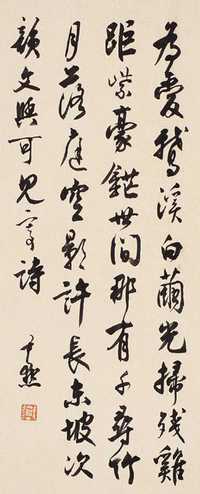 為愛鵝溪白繭光掃殘雞
距紫毫鋩世間那有千尋竹
月落庭空影許長東坡次
韻文與可見寄詩
尹默